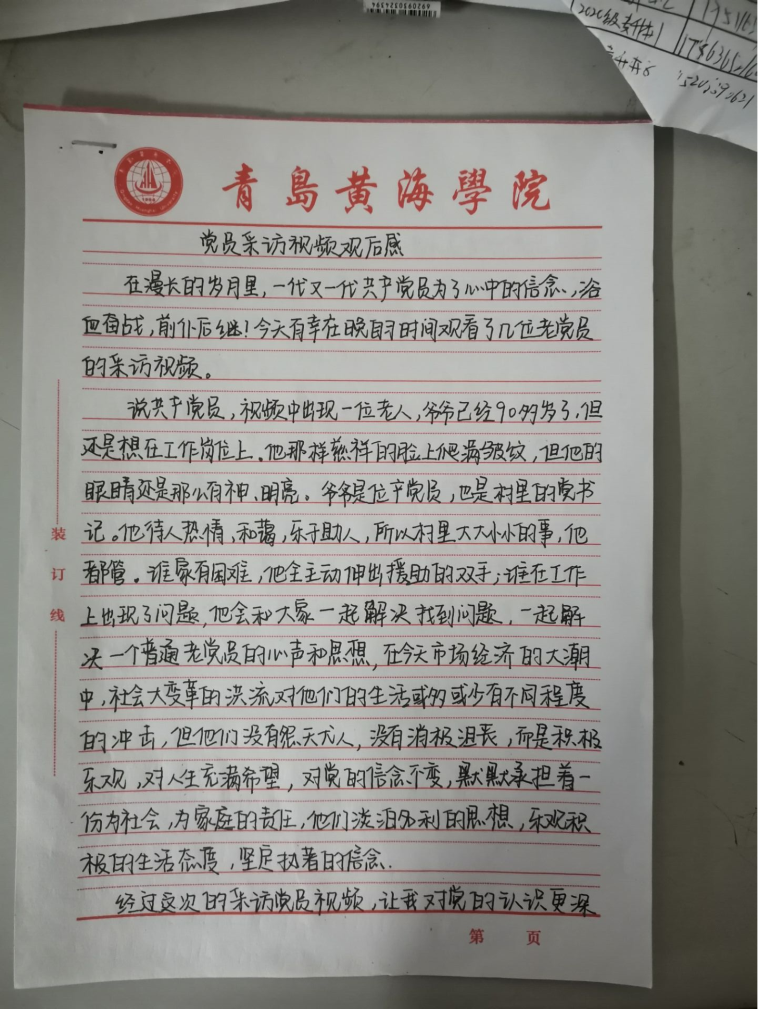 6920930324394
2020级专升本1
青島黄海學院
党员采访视频观后感
在漫长的岁月里，一代又一代共产党员为了心中的信念，浴
血奋战，前仆后继！今天有幸在晚自习时间观看了几位老党员
的采访视频。
说共产党员，视频中出现一位老人，爷爷已经90多岁了，但
还是想在工作岗位上。他那样慈祥的脸上爬满皱纹，但他的
眼睛还是那么有神、明亮。爷爷是位产党员，也是村里的党书
记。他待人热情、和蔼，乐于助人，所以村里大大小小的事，他
都管。谁家有困难，他主动伸出援助的双手；谁在工作
上出现了问题，他会和大家一起解决找到问题，一起解
决一个普通老党员的心声和思想，在今天市场经济的大潮
中，社会大变革的洪流对他们的生活或多或少有不同程度
的冲击，但他们没有怨天尤人，没有消极沮丧，而是积极
乐观，对人生充满希望，对党的信念不变，默默承担着一
份为社会，为家庭的责任，他们淡泊名利的思想，乐观积
极的生活态度，坚定执着的信念.
经过这次的采访党员视频，让我对党的认识更深
装
订
线
第 页